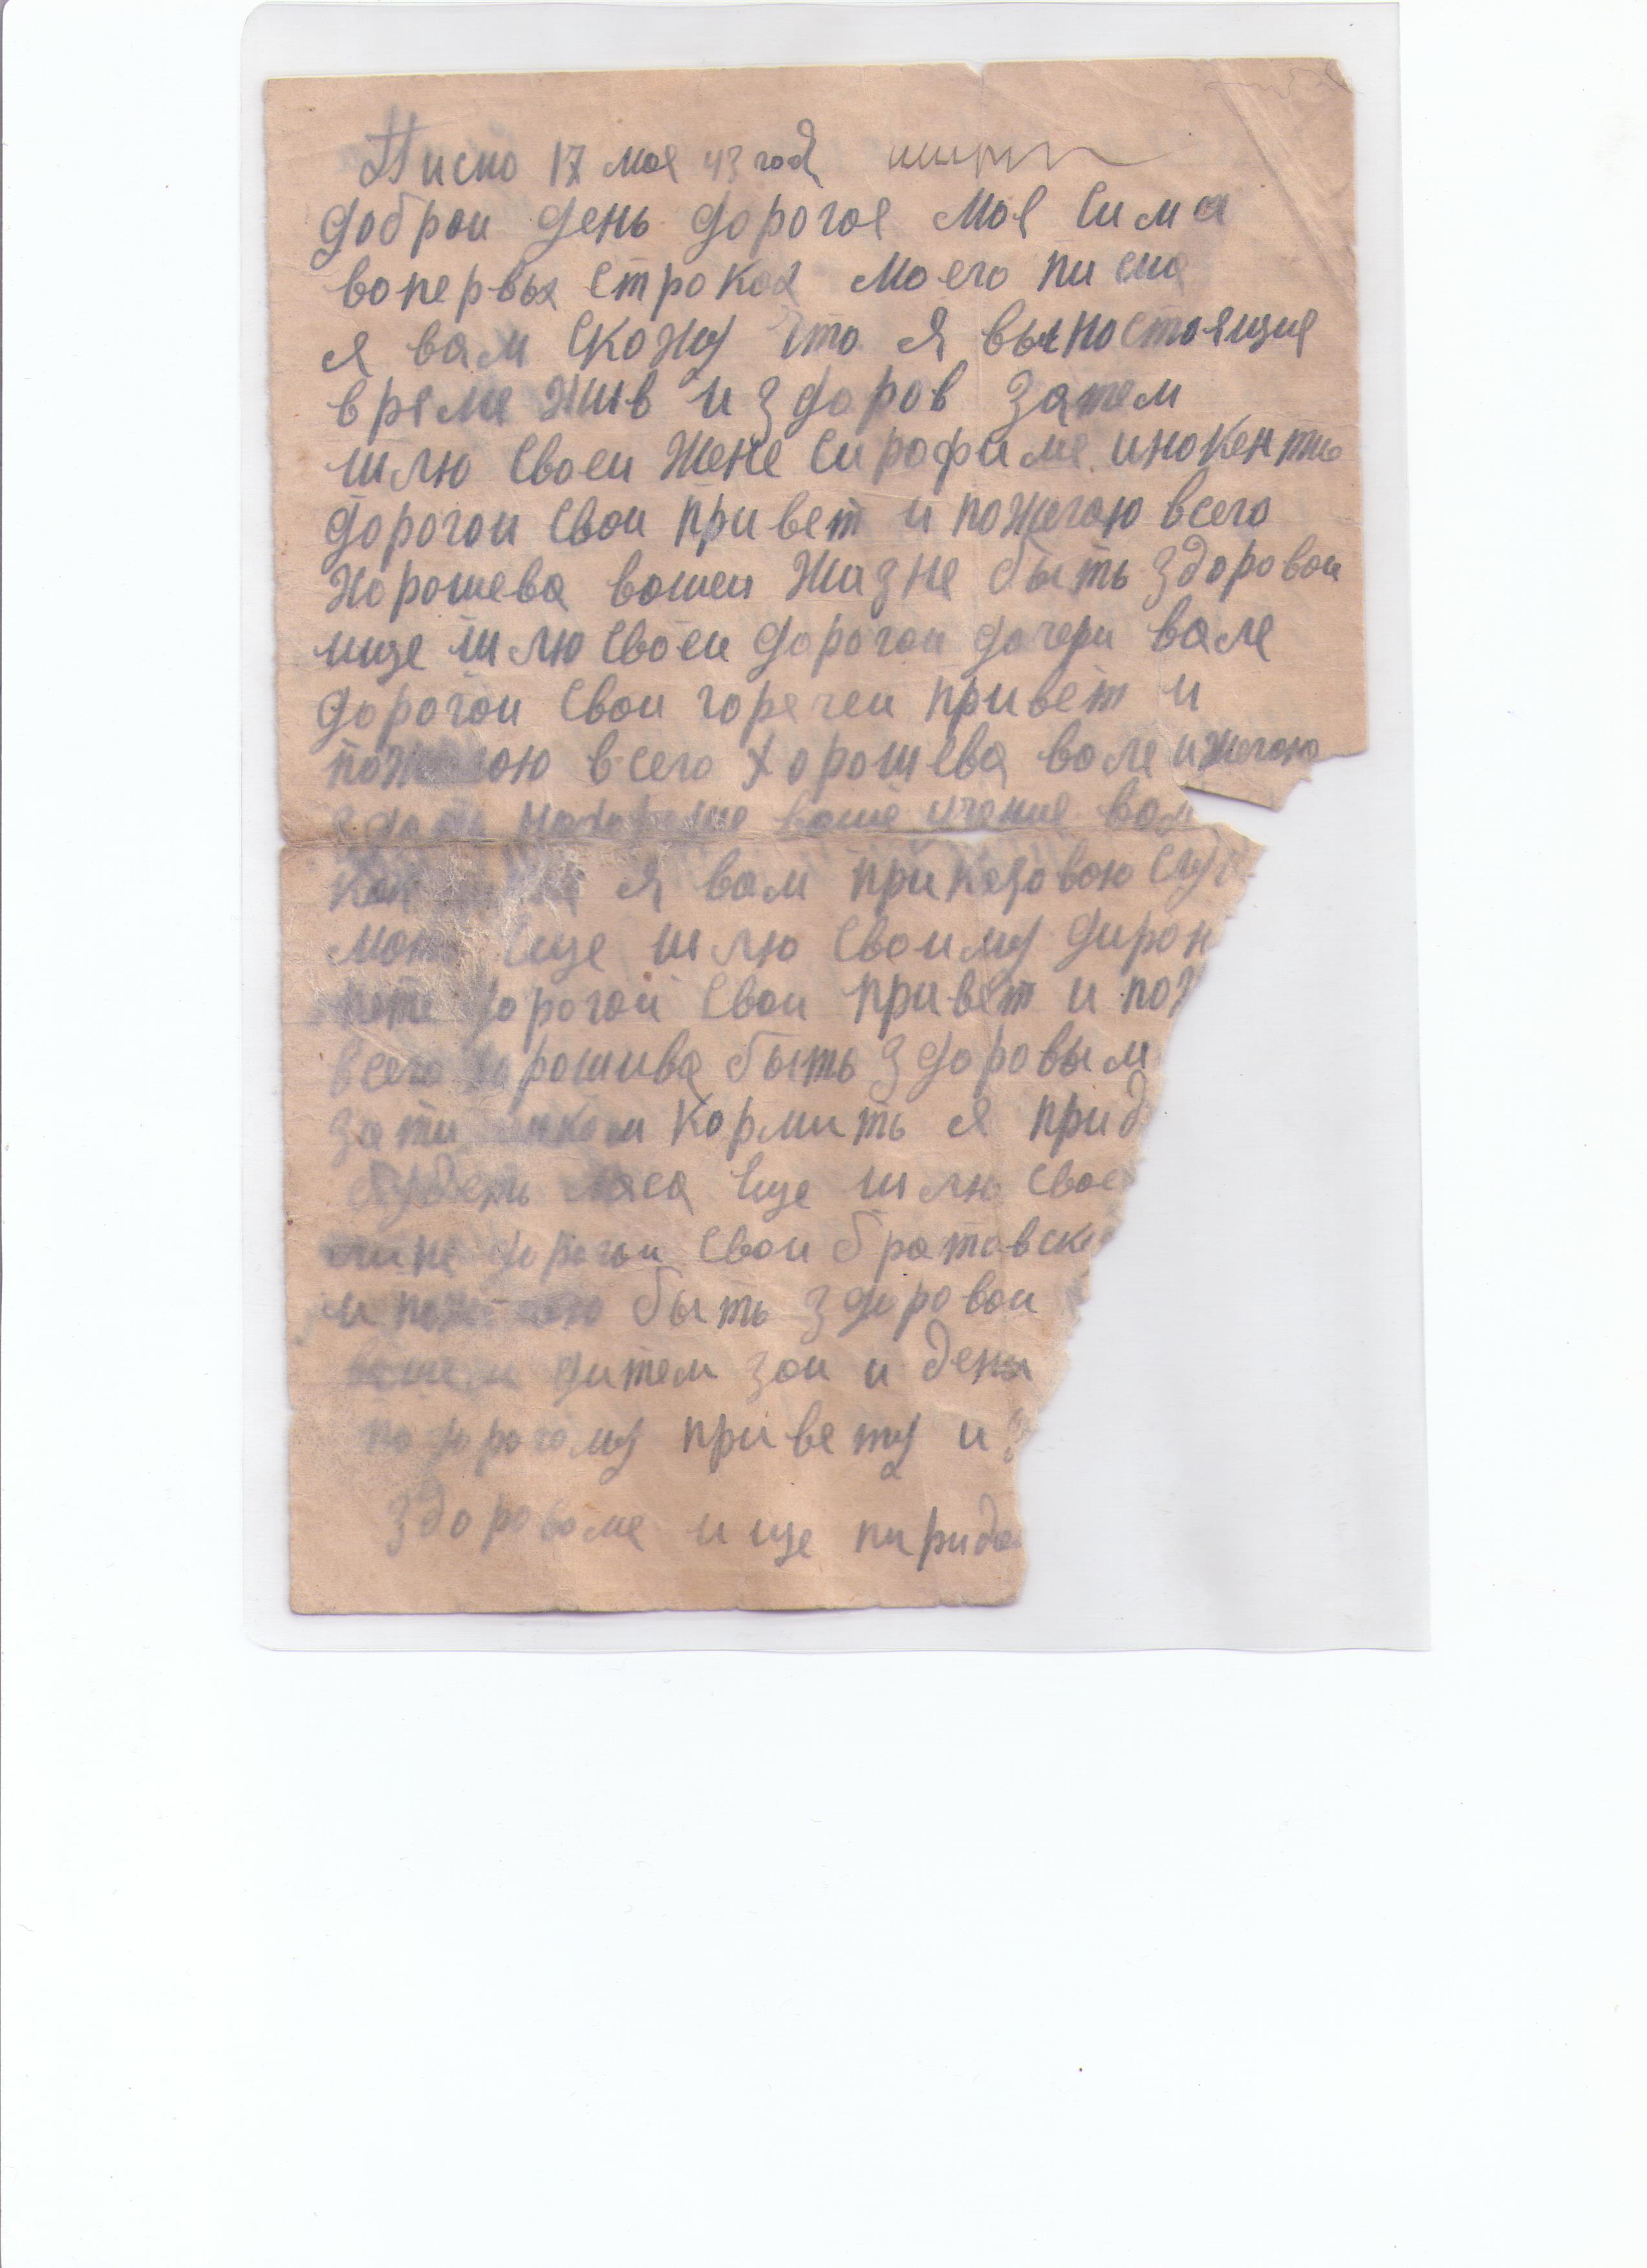 Писмо 17 мая 43 год
доброи день дорогоя моя Сима
вопервых строках моего писма
я вам скожу что я выностоящия
время жив и здоров затем
шлю своеи жене Сирофиме инокентьи
дорогои свои привет и пожилою всего
хорошева вошеи жизне быть здоровои
ище шлю своеи дорогои дочери вале
дорогои свои горячеи привет и
пожилою всего хорошева вале и желою
здать нахороше ваше учение вал
я вам приказовою слу
мать еще шлю своиму
пете дорогои свои привет и пож
всего хорошива быть здоровым
кормить я прид
мяса еще шлю свое
дорогои свои братовски
и быть здоровои
дитем зои и
по дорогому привету и
здоровоме ище пирида